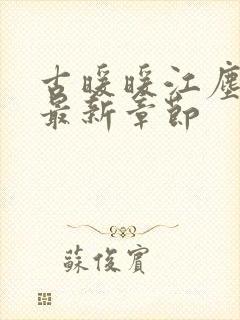 古暖暖江塵
最新章節
蘇俊賓